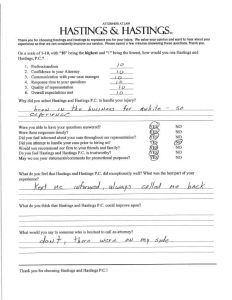 ATTORNEYS AT LAW
HASTINGS & HASTINGS
Thank you for choosing Hastings and Hastings to represent you for your injury. We value your opinion and want to hear about your
experience so that we can constantly improve our service. Please spend a few minutes answering these questions. Thank you.
On a scale of 1-10, with "10" being the highest and "1" being the lowest, how would you rate Hastings and
Hastings, P.C.?
1. Professionalism 10
2. Confidence in your Attorney 10
3. Communication with your case manager 10
4. Response time to you 10
5. Quality of representation 10
6. Overall expectations met 10
Why did you select Hastings and Hastings P.C. to handle your injury?
been in the business for awhile - so
experience
Were you able to have your questions answered? YES NO
Were these responses timely? YES NO
Did you feel informed about your case throughout our representation? YES NO
Did you attempt to handle your case prior to hiring us? YES NO
Would you recommend our firm to your friends and family? YES NO
Do you feel Hastings and Hastings P.C. is trustworthy? YES NO
May we use your statements/comments for promotional purposes? YES NO
What do you feel that Hastings and Hastings P.C. did exceptionally well? What was the best part of your
experience?
Kept me informed, always called me back
What do you think that Hastings and Hastings P.C. could improve upon?
What would you say to someone who is hesitant to call an attorney?
don't, there were on my side
Thank you for choosing Hastings and Hastings P.C.!